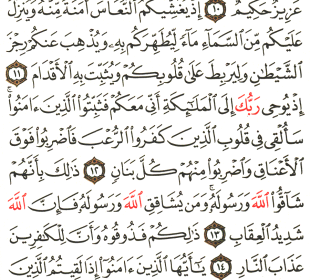 عَزِيزٌ حَكِيمٌ ١٠ إِذْ يُغَشِّيكُمُ ٱلنُّعَاسَ أَمَنَةً مِّنْهُ وَيُنَزِّلُ
عَلَيْكُم مِّنَ ٱلسَّمَآءِ مَآءً لِّيُطَهِّرَكُم بِهِۦ وَيُذْهِبَ عَنكُمْ رِجْزَ
ٱلشَّيْطَٰنِ وَلِيَرْبِطَ عَلَىٰ قُلُوبِكُمْ وَيُثَبِّتَ بِهِ ٱلْأَقْدَامَ ١١
إِذْ يُوحِى رَبُّكَ إِلَى ٱلْمَلَٰٓئِكَةِ أَنِّى مَعَكُمْ فَثَبِّتُوا۟ ٱلَّذِينَ ءَامَنُوا۟ۚ
سَأُلْقِى فِى قُلُوبِ ٱلَّذِينَ كَفَرُوا۟ ٱلرُّعْبَ فَٱضْرِبُوا۟ فَوْقَ
ٱلْأَعْنَاقِ وَٱضْرِبُوا۟ مِنْهُمْ كُلَّ بَنَانٍ ١٢ ذَٰلِكَ بِأَنَّهُمْ
شَآقُّوا۟ ٱللَّهَ وَرَسُولَهُۥۚ وَمَن يُشَاقِقِ ٱللَّهَ وَرَسُولَهُۥ فَإِنَّ ٱللَّهَ
شَدِيدُ ٱلْعِقَابِ ١٣ ذَٰلِكُمْ فَذُوقُوهُ وَأَنَّ لِلْكَٰفِرِينَ
عَذَابَ ٱلنَّارِ ١٤ يَٰٓأَيُّهَا ٱلَّذِينَ ءَامَنُوٓا۟ إِذَا لَقِيتُمُ ٱلَّذِينَ